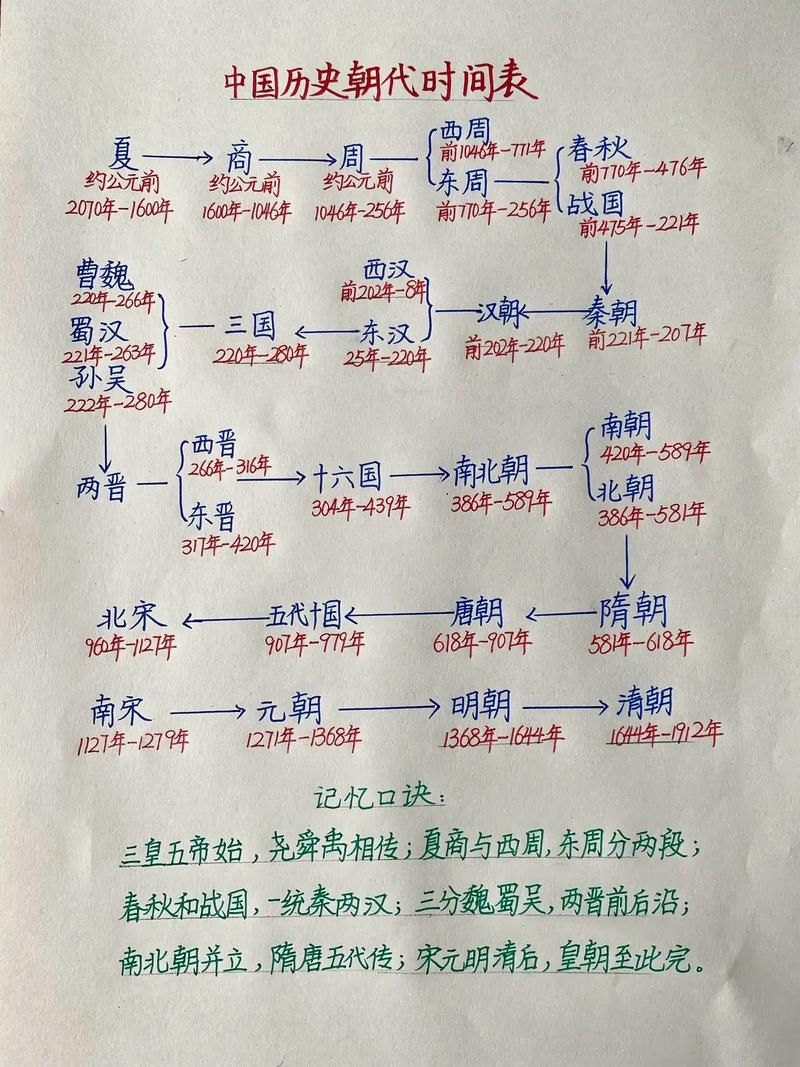 中国历史朝代时间表
夏 商 周
约公元前 约公元前 约公元前
2070年-1600年 1600年-1046年 1046年-256年
西周
前1046年-771年
东周
前770年-256年
春秋
前770年-476年
战国
前475年-221年
秦朝
前221年-207年
汉朝
前202年-220年
西汉
前202年-8年
东汉
25年-220年
三国
220年-280年
曹魏
220年-266年
蜀汉
221年-263年
孙吴
222年-280年
两晋
西晋
266年-316年
东晋
317年-420年
十六国
304年-439年
南北朝
386年-589年
南朝
420年-589年
北朝
386年-581年
隋朝
581年-618年
唐朝
618年-907年
五代十国
907年-979年
北宋
960年-1127年
南宋
1127年-1279年
元朝
1271年-1368年
明朝
1368年-1644年
清朝
1644年-1912年
记忆口诀:
三皇五帝始,尧舜禹相传;夏商与西周,东周分两段;
春秋和战国,一统秦两汉;三分魏蜀吴,两晋前后沿;
南北朝并立,隋唐五代传;宋元明清后,皇朝至此完。